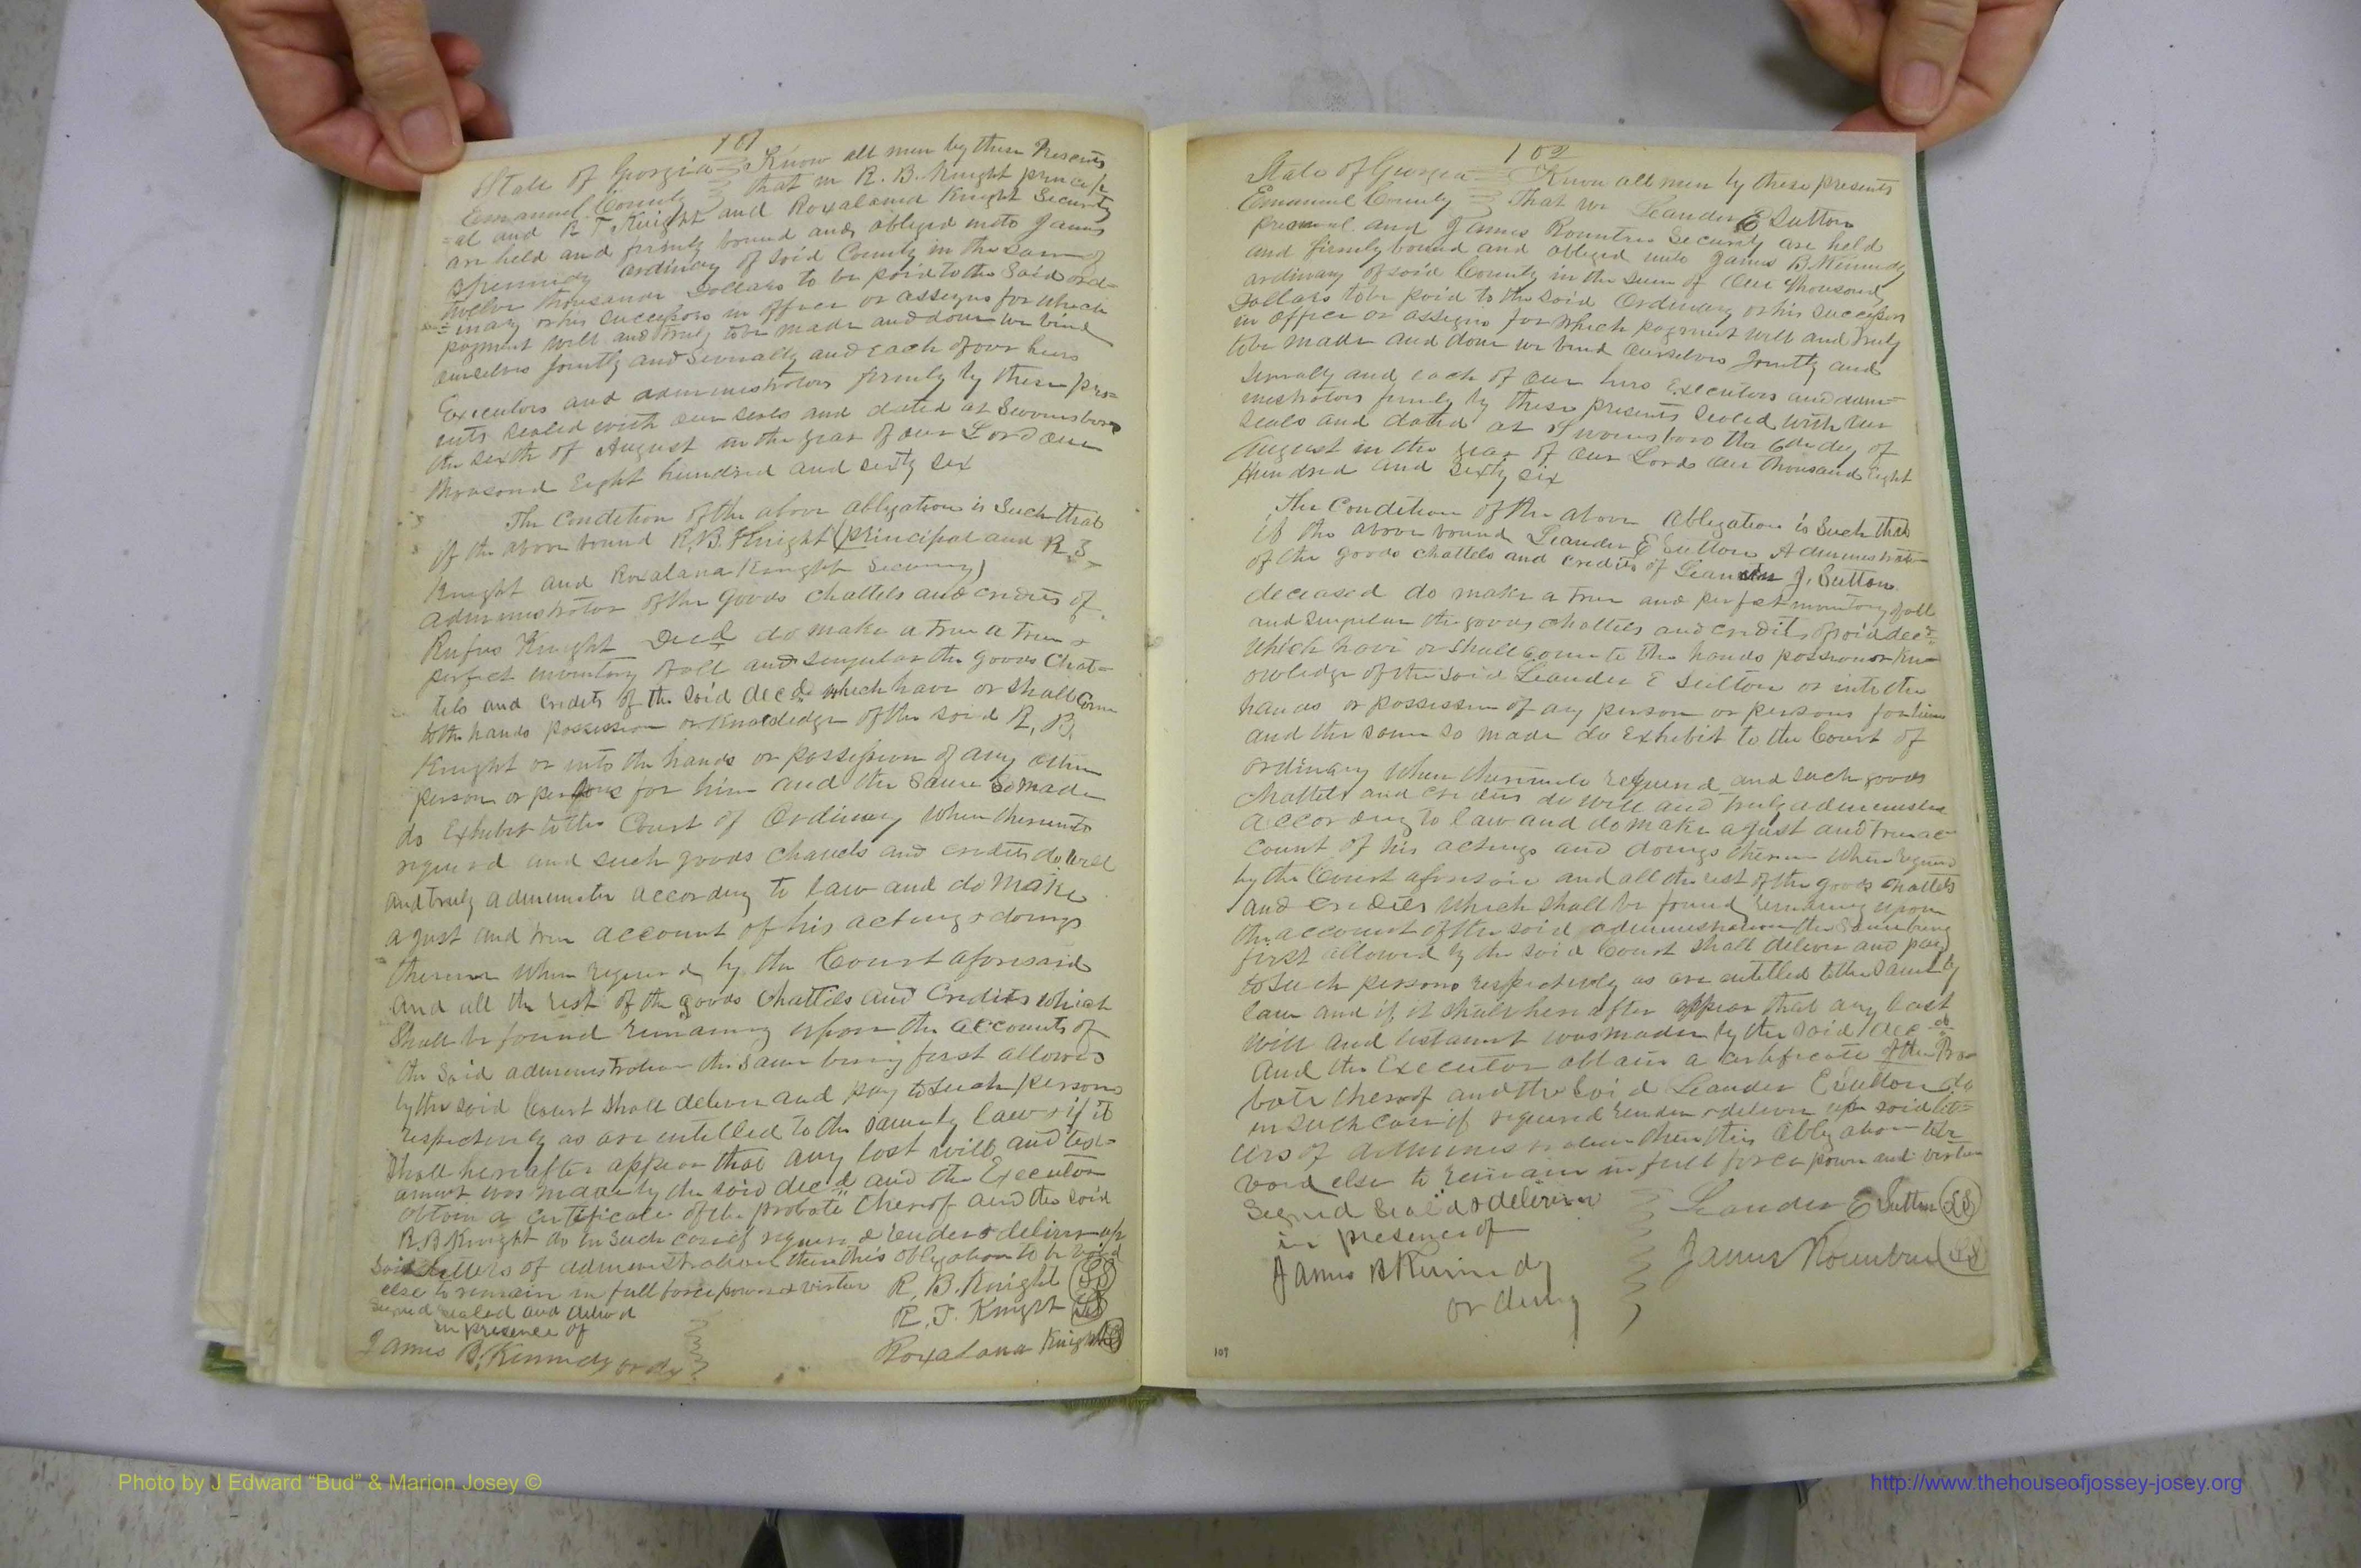 101
State of Georgia Know all men by these Presents
Emanuel County that we R. B. Knight princip
=al and R T Knight and Roxalana Knight Security
are held and firmly bound and obliged unto James
B Kennedy ordinary of said County in the sum of
twelve thousand Dollars to be paid to the said ord=
=inary or his successors in office or assigns for which
payment well and truly to be made and done we bind
ourselves jointly and severally and each of our heirs
Executors and administrators firmly by these pres=
ents sealed with our seals and dated at Swainsboro
the sixth of August in the year of our Lord one
thousand Eight hundred and sixty six
The Condition of the above obligation is Such that
if the above bound R. B. Knight (principal and R. T.
Knight and Roxalana Knight Security)
administrator of the goods chattels and credits of
Rufus Knight Decd do make a true a true &
perfect inventory of all and singular the goods Chat=
tels and credits of the said decd which have or shall come
to the hands possession or Knowledge of the said R. B.
Knight or into the hands or possession of any other
person or persons for him and the same so made
do Exhibit to the Court of Ordinary when thereunto
required and such goods chattels and credits do well
and truly administer according to law and do make
a just and true account of his actings & doings
therein when required by the Court aforesaid
and all the rest of the goods Chattles and Credits which
Shall be found remaining upon the accounts of
the said administration the same being first allowed
by the said Court shall deliver and pay to such persons
respectively as are entitled to the same by law & if it
shall hereafter appear that any last will and test=
ament was made by the said decd and the Executor
obtain a certificate of the probate thereof and the said
R B Knight do in such case if required render & deliver up
said letters of administration then this obligation to be void
else to remain in full force power & virtue R. B. Knight (LS)
signed sealed and delivd R. T. Knight (LS)
in presence of
James B. Kennedy ordy Roxalana Knight (LS)
102
State of Georgia Know all men by these presents
Emanuel County That we Leander E Sutton
principal and James Rountree Security are held
and firmly bound and obliged unto James B. Kennedy
ordinary of said County in the sum of One thousand
Dollars to be paid to the said Ordinary or his successors
in office or assigns for which payment well and truly
to be made and done we bind ourselves Jointly and
severally and each of our hirs Executors and admi=
nistrators firmly by these presents sealed with our
seals and dated at Swainsboro the 6th day of
August in the year of our Lord one thousand Eight
Hundred and Sixty six
The Condition of the above Obligation is Such that
if the above bound Leander E Sutton Administrator
of the goods chattels and credits of Leander J. Sutton
deceased do make a true and perfect inventory of all
and singular the goods chattles and credits of said decd
which have or shall come to the hands possession or Kn=
owledge of the said Leander E Sutton or into the
hands or possession of any person or persons for him
and the same so made do Exhibit to the Court of
ordinary when thereunto required and such goods
chattels and credits do well and truly administer
according to law and do make a just and true ac
count of his actings and doings therein when required
by the Court aforesaid and all the rest of the goods chattels
and credits which shall be found remaining upon
the account of the said administration the same being
first allowed by the said Court shall deliver and pay
to such persons respectively as are entitled to the same by
law and if it shall hereafter appear that any last
will and testament was made by the said decd
and the Executor obtain a certificate of the Pro=
bate thereof and the said Leander E Sutton do
in such case if required render & deliver up said let=
ters of administration then this obligation to be
void else to remain in full force power and virtue
Signed Sealed & delivered Leander E Sutton (LS)
in presence of
James B Kennedy James Rountree (LS)
ordinary
107
Photo by J Edward “Bud” & Marion Josey ©
http://www.thehouseofjossey-josey.org